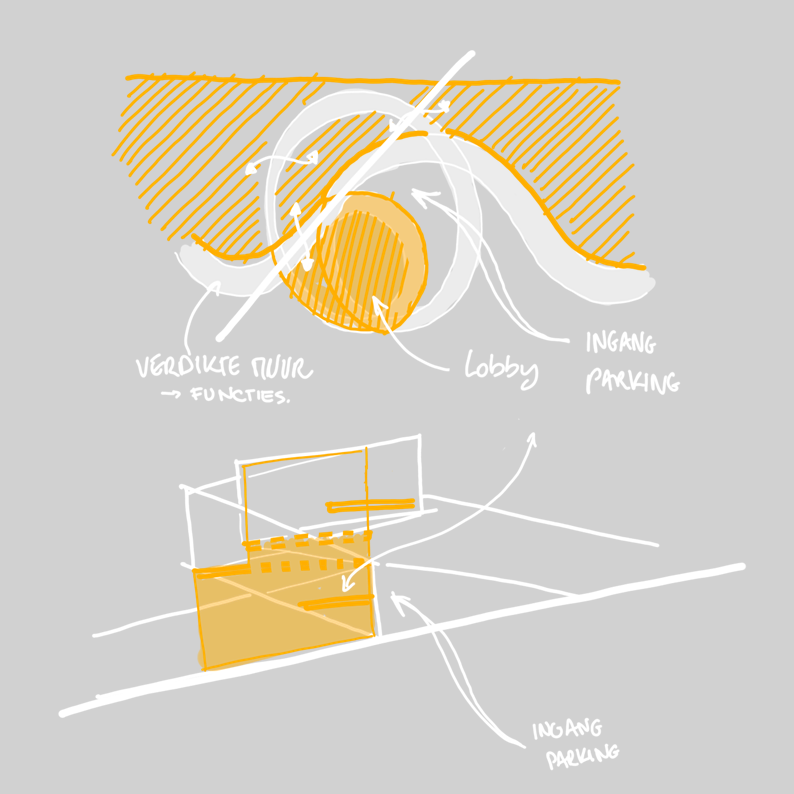 VERDIKTE MUUR
→ FUNCTIES.
Lobby
INGANG
PARKING
INGANG
PARKING